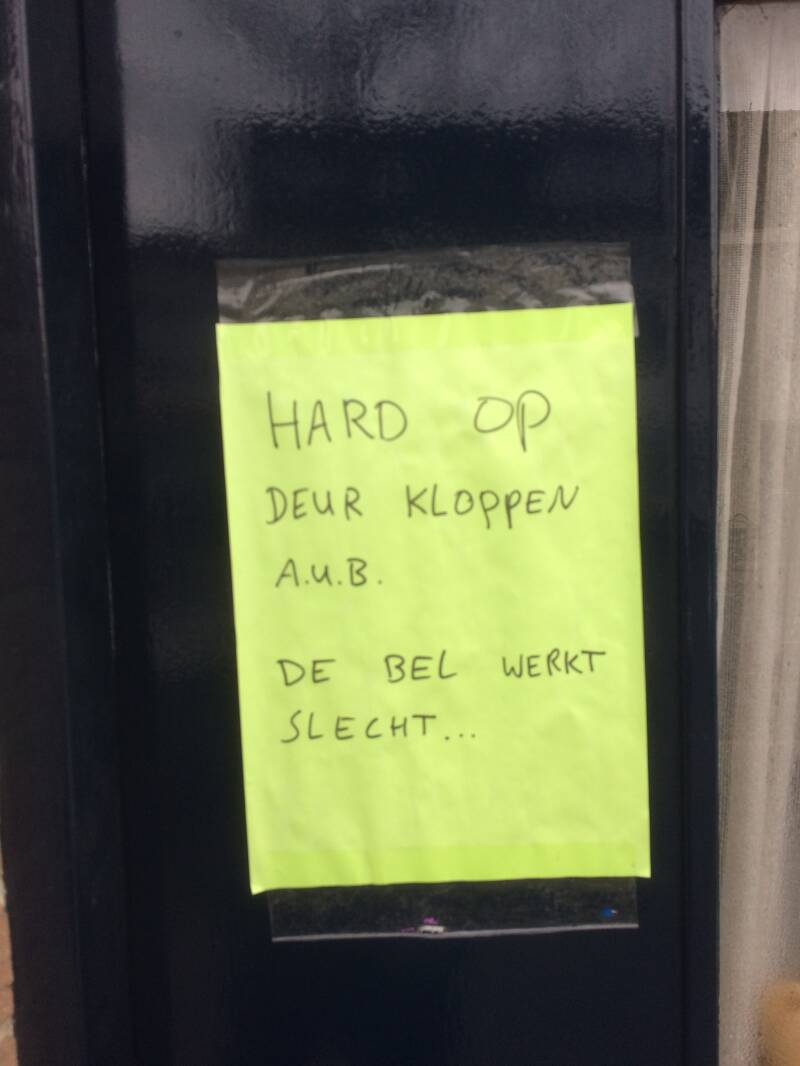 HARD OP
DEUR KLOPPEN
A.U.B.
DE BEL WERKT
SLECHT...